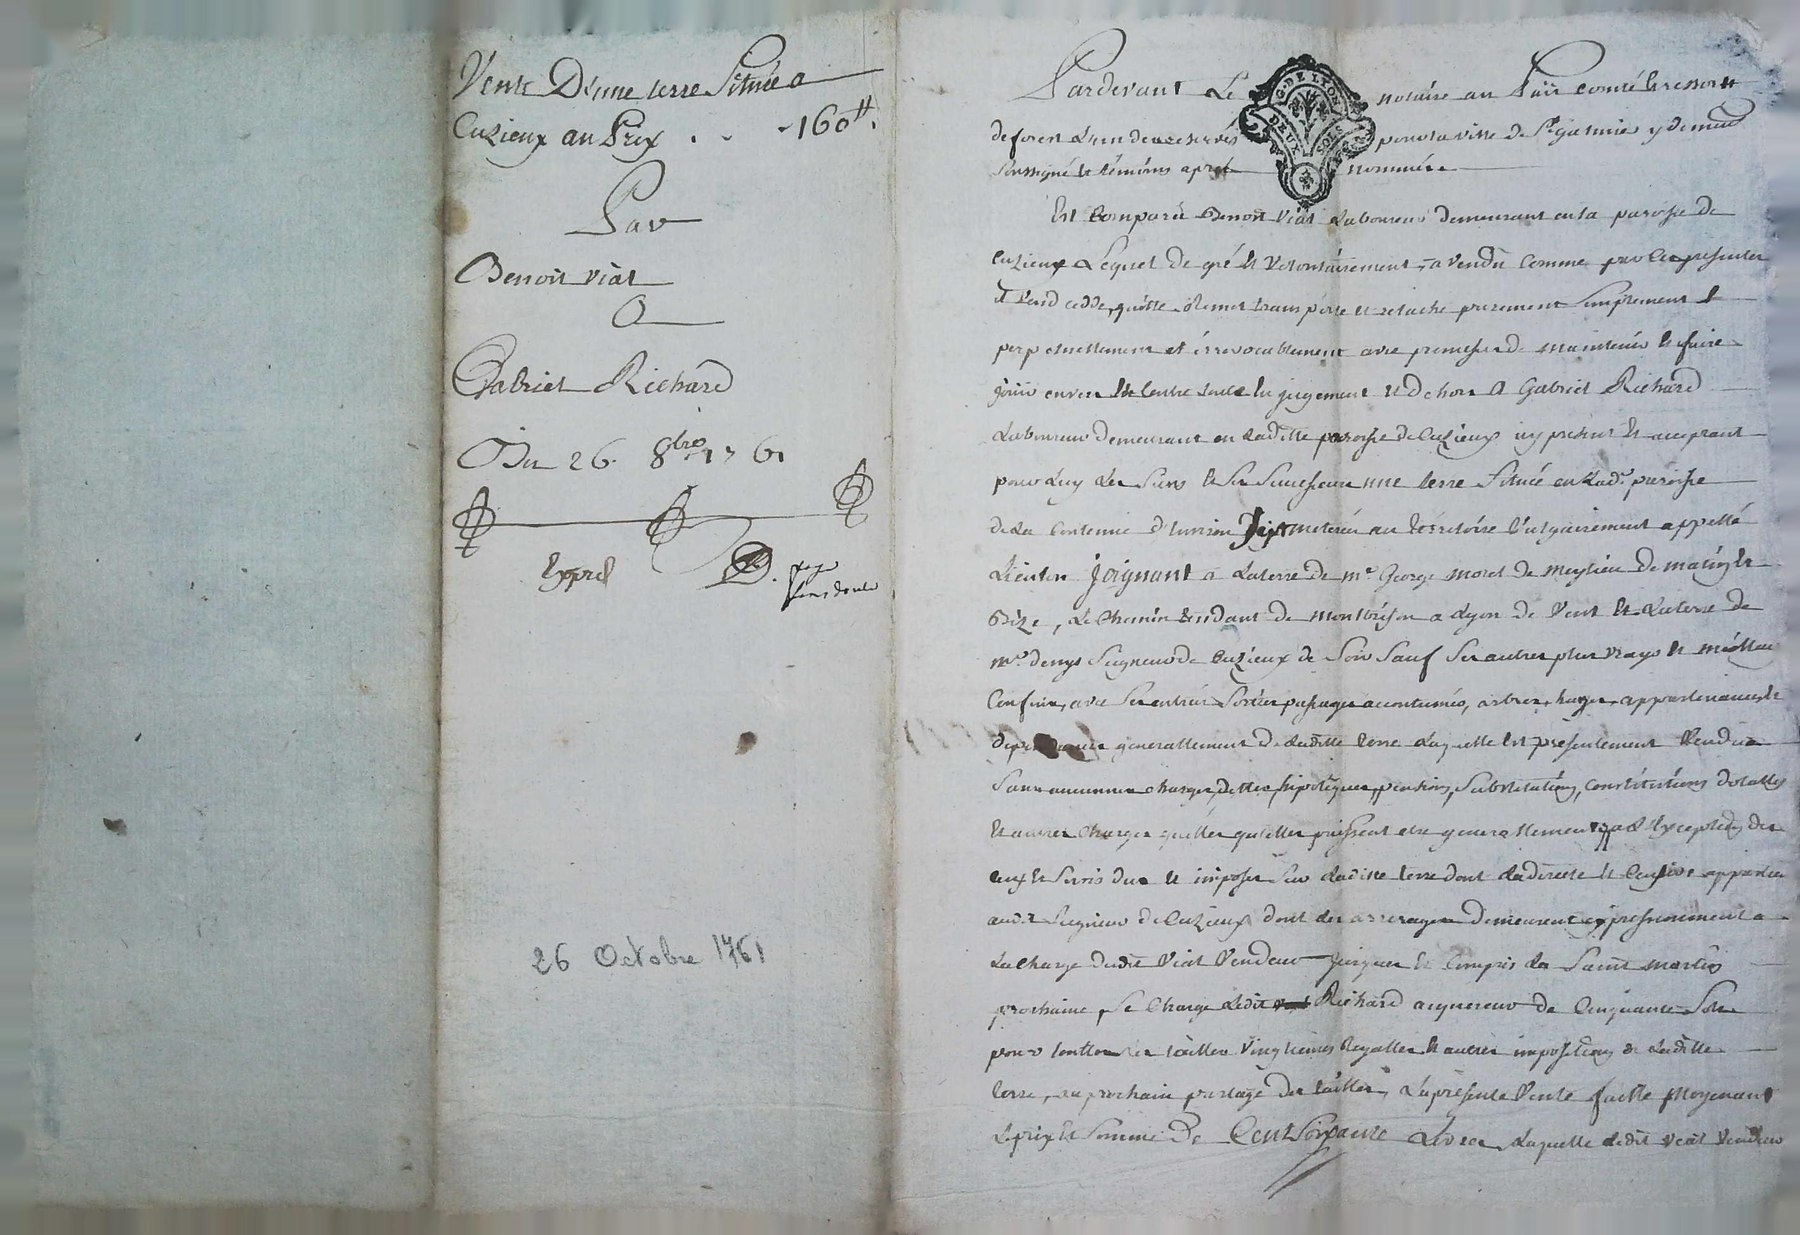 Vente D'une terre Située a
Cuzieux au Prix . . . 160 tt.
Par
Benoit viat
A
Gabriel Richard
Du 26. 8bre 1761
Expéd
26 Octobre 1761
G. DE LYON
DEUX SOLS
Pardevant Le notaire au Païs comté & ressort
de forest pour la ville de St galmier y demt
soussigné & témoins apres nommés
Est Comparu Benoit Viat Laboureur demeurant en la paroisse de
Cuzieux Lequel de gré & volontairement, a vendu comme par Ces présentes
il vend cedde, quitte, remet transporte et relache purement simplement &
perpetuellement et irrevocablement avec promesse de maintenir & faire
jouir envers & contre tous en jugement & dehors A Gabriel Richard
Laboureur demeurant en Laditte paroisse de Cuzieux icy présent & acceptant
pour Luy Les siens & ses successeurs une terre Située en Lad. paroisse
de La Contenue d'environ Sept meterée au territoire vulgairement appellé
joignant a La terre de mr George moret de meylieu de matin &
Bize, Le Chemin tendant de montbrison a Lyon de vent & La terre de
mr denys Seigneur de Cuzieux de soir sauf ses autres plus vrays & meilleurs
Confins, avec ses entrées sorties passages accoutumés, arbres, hayes, appartenances &
dependances generallement de Laditte terre Laquelle est présentement vendue
sans aucunes charges, dettes, hipotèques, pensions, Substitutions, Constitutions dotalles
& autres charges quelles quelles puissent etre generallement, a l'exception des
cens & servis dus & imposés sur Laditte terre dont La directe & Censive appartient
audt Seigneur de Cuzieux dont des arrerages demeurent expressement a
La charge dudit Viat Vendeur jusques & Compris La Saint martin
prochaine, Se Charge Ledit Richard acquereur de Cinquante Sols
pour toutes Les tailles vingtiemes Royalles & autres impositions de Laditte
terre, au prochain partage des tailles, La présente Vente faitte Moyenant
Le prix & Somme de Cent Soixante Livres Laquelle Ledit viat vendeur